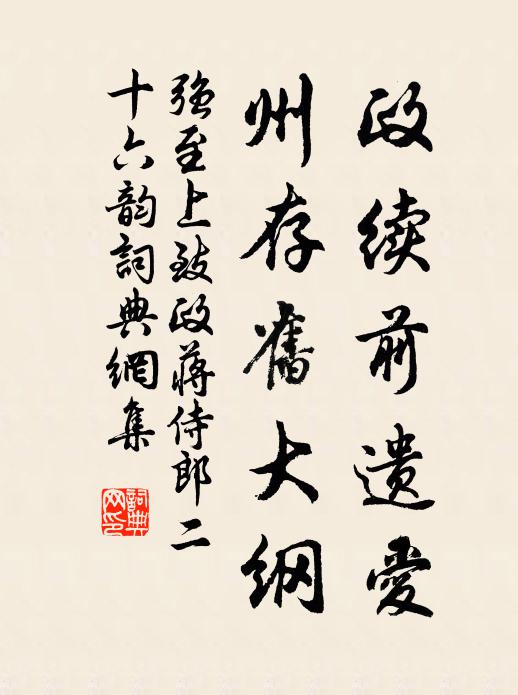 政续前遗爱
州存舊大纲
强至上致政蔣侍郎二
十六韵詞典網集
詞典网印